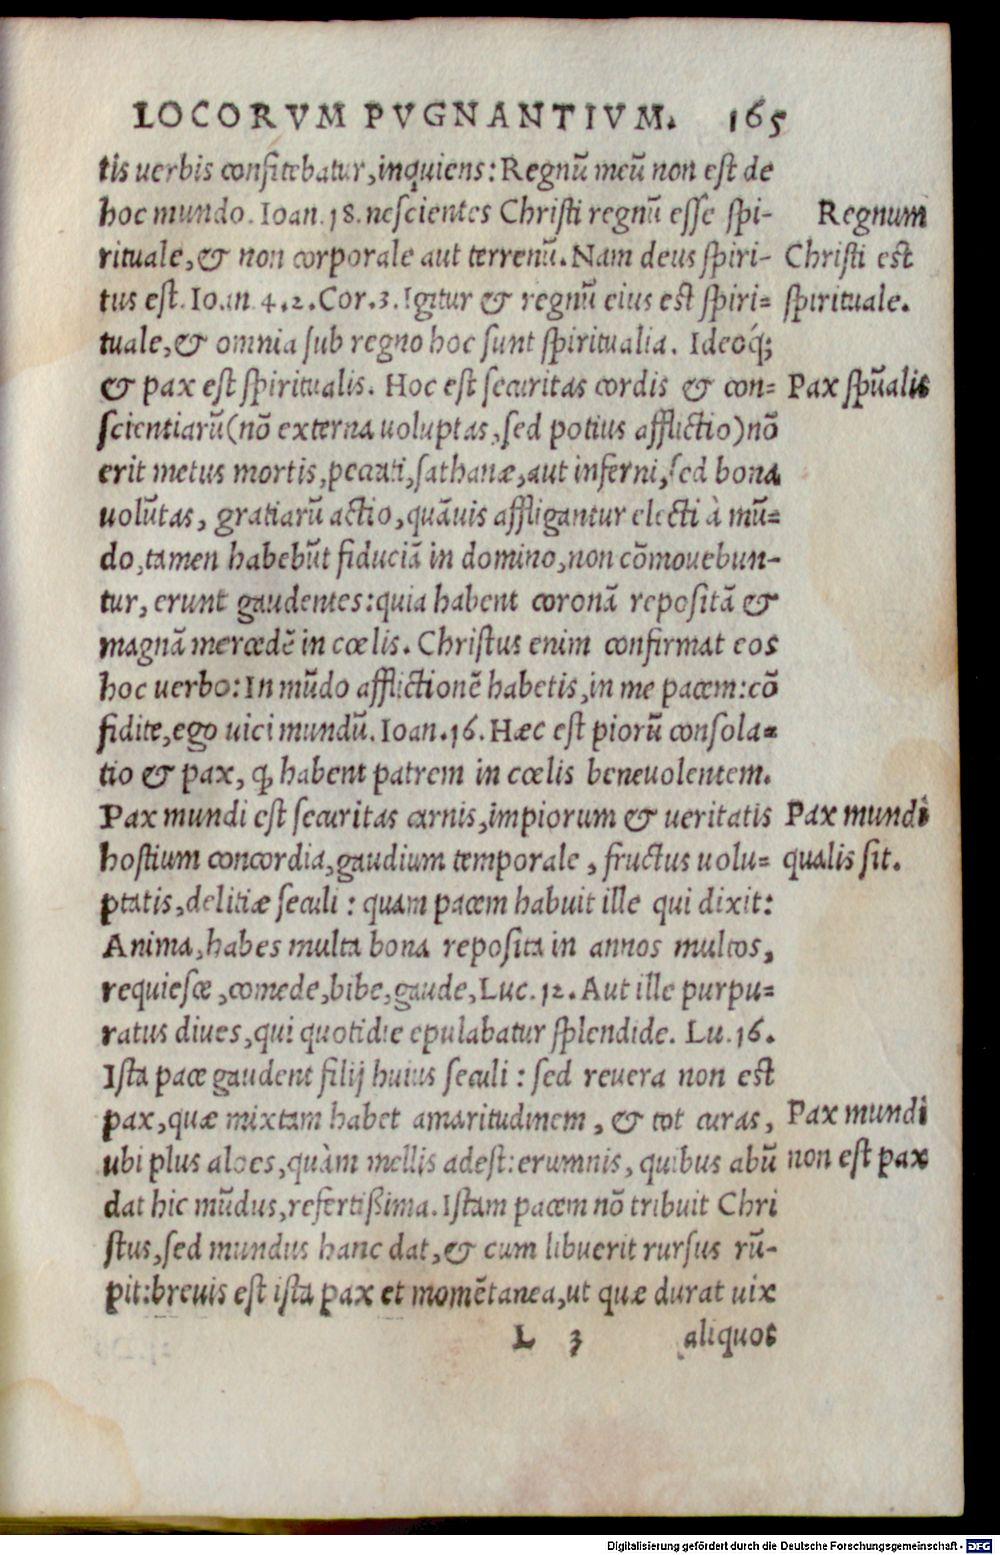 LOCORVM PVGNANTIVM. 165
tis uerbis confitebatur, inquiens: Regnũ meũ non est de
hoc mundo. Ioan. 18. nescientes Christi regnũ esse spi-
Regnum
rituale, & non corporale aut terrenũ. Nam deus spiri-
Christi est
tus est. Ioan. 4. 2. Cor. 3. Igitur & regnũ eius est spiri=
spirituale.
tuale, & omnia sub regno hoc sunt spiritualia. Ideoq́;
& pax est spiritualis. Hoc est securitas cordis & con=
Pax spũalis
scientiarũ (nõ externa uoluptas, sed potius afflictio) nõ
erit metus mortis, peccati, sathanæ, aut inferni, sed bona
uolũtas, gratiarũ actio, quãuis affligantur electi à mũ=
do, tamen habebũt fiduciã in domino, non cõmouebun-
tur, erunt gaudentes: quia habent coronã repositã &
magnã mercedẽ in cœlis. Christus enim confirmat eos
hoc uerbo: In mũdo afflictionẽ habetis, in me pacem: cõ
fidite, ego uici mundũ. Ioan. 16. Hæc est piorũ consola=
tio & pax, ꝙ habent patrem in cœlis beneuolentem.
Pax mundi est securitas carnis, impiorum & ueritatis
Pax mundi
hostium concordia, gaudium temporale, fructus uolu=
qualis sit.
ptatis, delitiæ seculi: quam pacem habuit ille qui dixit:
Anima, habes multa bona reposita in annos multos,
requiesce, comede, bibe, gaude, Luc. 12. Aut ille purpu=
ratus diues, qui quotidie epulabatur splendide. Lu. 16.
Ista pace gaudent filij huius seculi: sed reuera non est
pax, quæ mixtam habet amaritudinem, & tot curas,
Pax mundi
ubi plus aloes, quàm mellis adest: erumnis, quibus abũ
non est pax
dat hic mũdus, refertißima. Istam pacem nõ tribuit Chri
stus, sed mundus hanc dat, & cum libuerit rursus rũ-
pit: breuis est ista pax et momẽtanea, ut quæ durat uix
L 3 aliquos
Digitalisierung gefördert durch die Deutsche Forschungsgemeinschaft - DFG